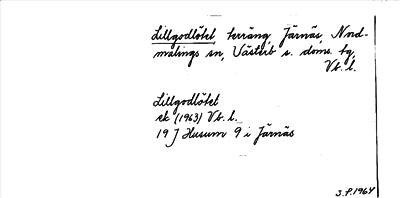 Lillgodlötet, terräng, Järnäs, Nord-
malings sn, Västerb. s. doms. tg,
Vb. l.
Lillgodlötet
ek (1963) Vb. l.
19 J Husum 9 i Järnäs
3.P.1964